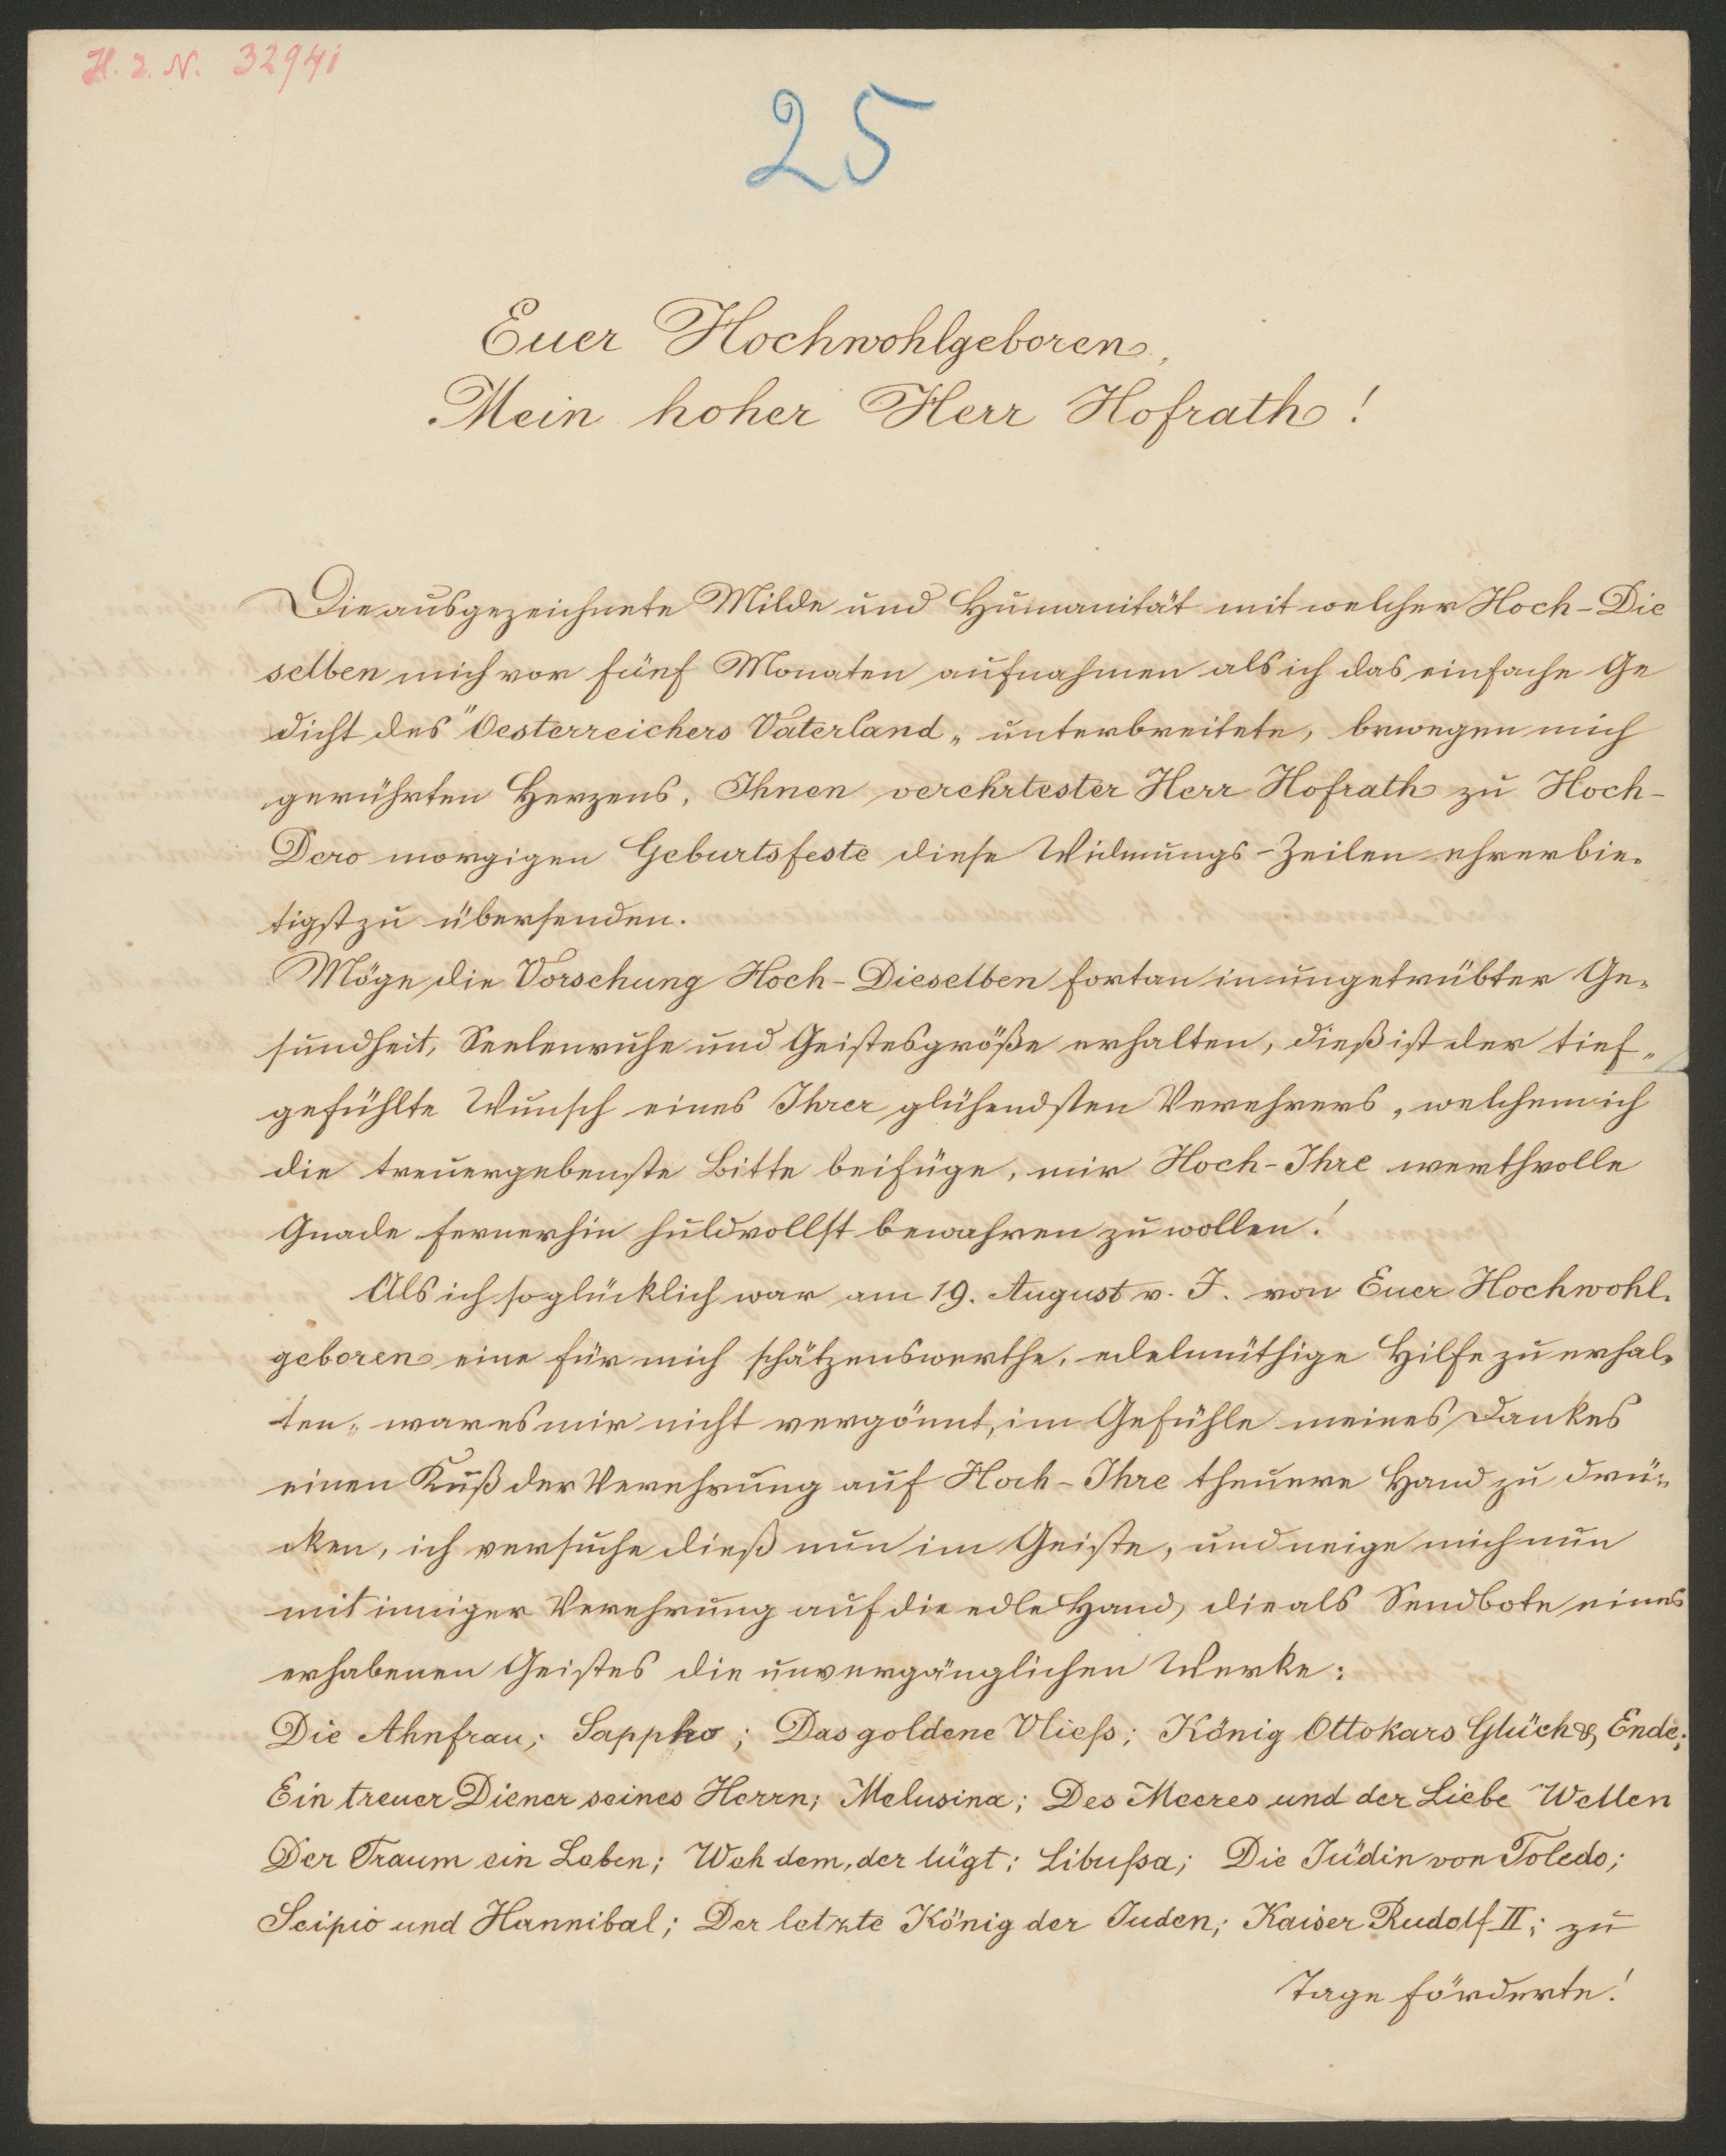 H. I. N. 32941
25
Euer Hochwohlgeboren,
Mein hoher Herr Hofrath!
Die ausgezeichnete Milde und Humanität mit welcher Hoch-Die
selben mich vor fünf Monaten aufnahmen als ich das einfache Ge
dicht des "Oesterreichers Vaterland„ unterbreitete, bewegen mich
gerührten Herzens, Ihnen verehrtester Herr Hofrath zu Hoch-
Dero morgigen Geburtsfeste diese Widmungs-Zeilen ehrerbie-
tigst zu übersenden.
Möge die Vorsehung Hoch-Dieselben fortan in ungetrübter Ge-
sundheit, Seelenruhe und Geistesgröße erhalten, dieß ist der tief-
gefühlte Wunsch eines Ihrer glühendsten Verehrers, welchem ich
die treuergebenste Bitte beifüge, mir Hoch-Ihre werthvolle
Gnade fernerhin huldvollst bewahren zu wollen!
Als ich so glücklich war am 19. August v. J. von Euer Hochwohl-
geboren eine für mich schätzenswerthe, edelmüthige Hilfe zu erhal-
ten, war es mir nicht vergönnt, im Gefühle meines Dankes
einen Kuß der Verehrung auf Hoch-Ihre theuere Hand zu drü-
cken, ich versuche dieß nun im Geiste, und neige mich nun
mit inniger Verehrung auf die edle Hand, die als Sendbote eines
erhabenen Geistes die unvergänglichen Werke:
Die Ahnfrau; Sappho; Das goldene Vließ; König Ottokars Glück & Ende;
Ein treuer Diener seines Herrn; Melusina; Des Meeres und der Liebe Wellen
Der Traum ein Leben; Weh dem, der lügt; Libußa; Die Jüdin von Toledo;
Scipio und Hannibal; Der letzte König der Juden; Kaiser Rudolf II; zu
Tage förderte!